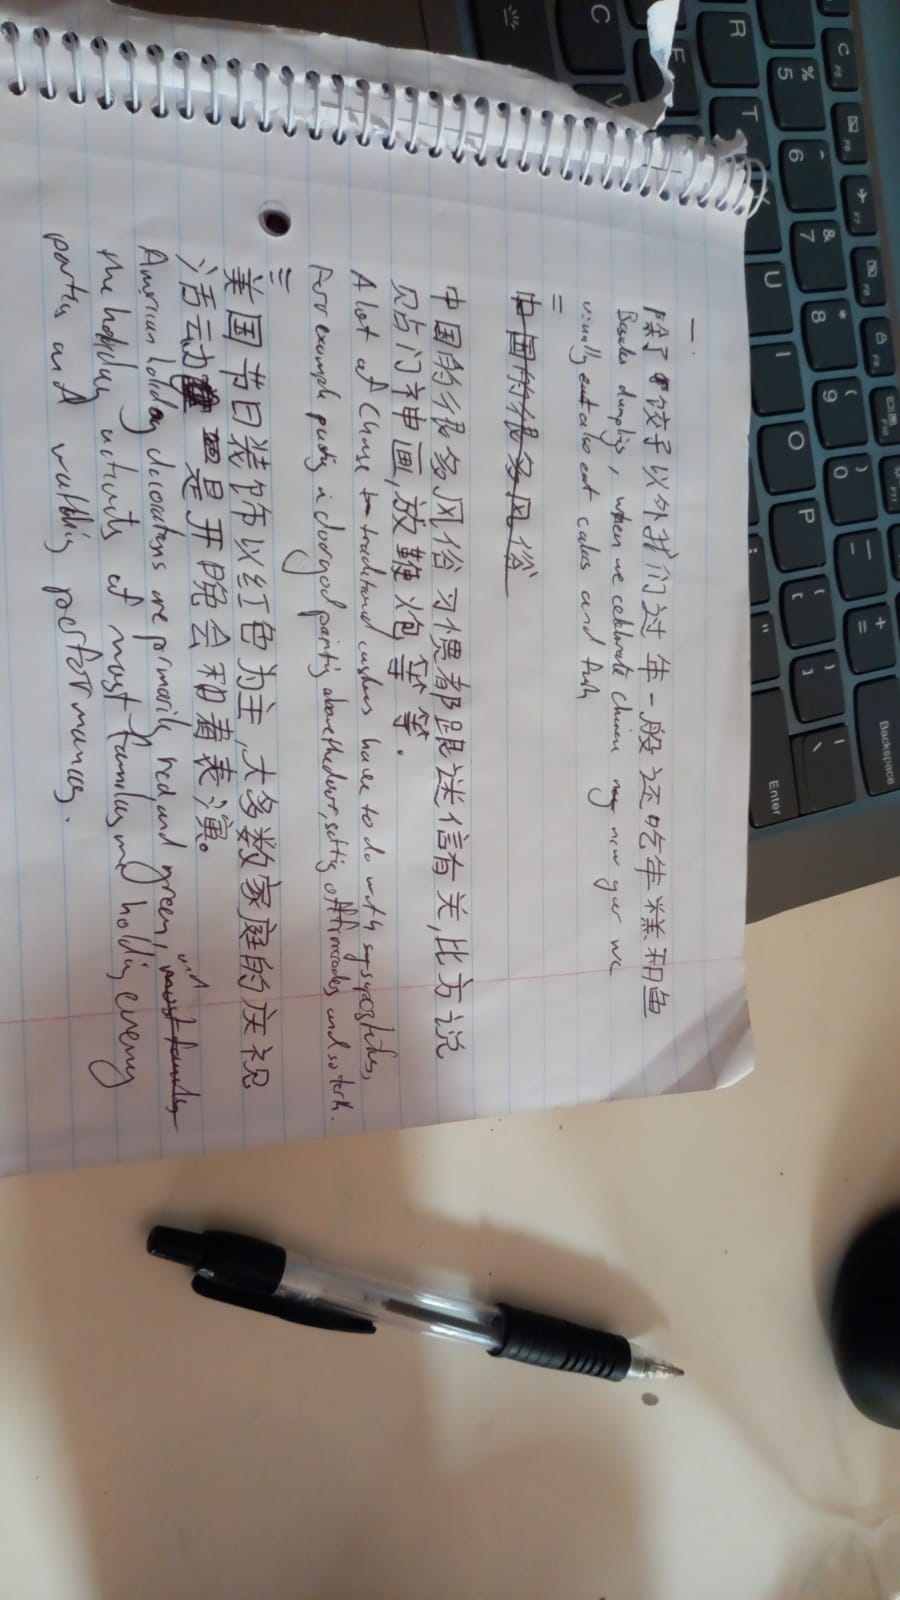 一.
除了饺子以外我们过年一般还吃年糕和鱼
Besides dumplings, when we celebrate chinese new year we
usually eat also eat cakes and fish
二
中国的很多风俗
中国的很多风俗习惯都跟迷信有关,比方说
贴门神画,放鞭炮等等.
A lot of Chinese traditional customs have to do with
For example putting a doorgod painting above the door, setting off firecrackers and so forth.
三
美国节日装饰以红色为主,大多数家庭的庆祝
活动 是开晚会和看表演。
American holiday decorations are primarily red and green, and most families
the holiday activities of most families and holding evening
parties and watching performances.
C
R
T
U
I
O
P
F
V
% 5
^ 6
& 7
* 8
( 9
) 0
_ -
+ =
{ [
} ]
| \
" '
: ;
Backspace
Enter